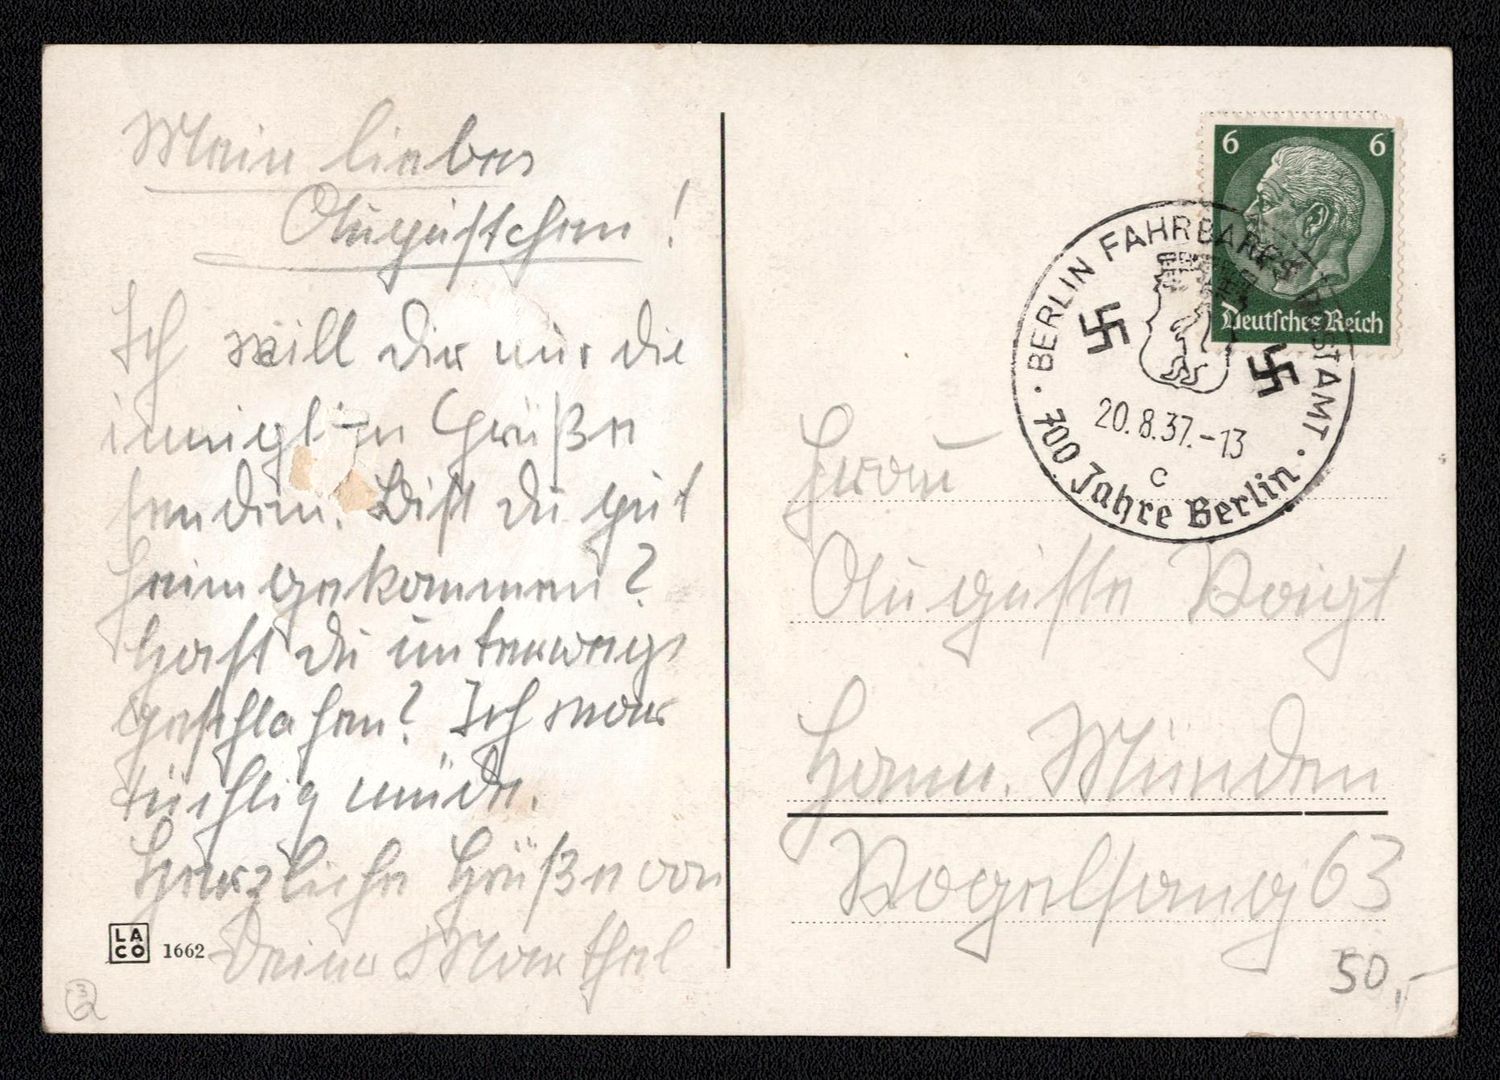 Mein liebes
Augustchen!
Ich will Dir nur die
innigsten Grüße
senden. Bist Du gut
heimgekommen?
hast Du unterwegs
geschlafen? Ich war
tüchtig müde.
Herzliche Grüße von
Deiner Marthel
LACO 1662
3
6 6
Deutsches Reich
BERLIN FAHRBARES POSTAMT
20.8.37.-13
c
700 Jahre Berlin
Frau
Auguste Voigt
Hann. Münden
Vogelsang 63
50,-